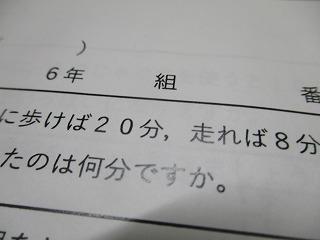 )
6年 組 番
に歩けば20分，走れば8分
たのは何分ですか。